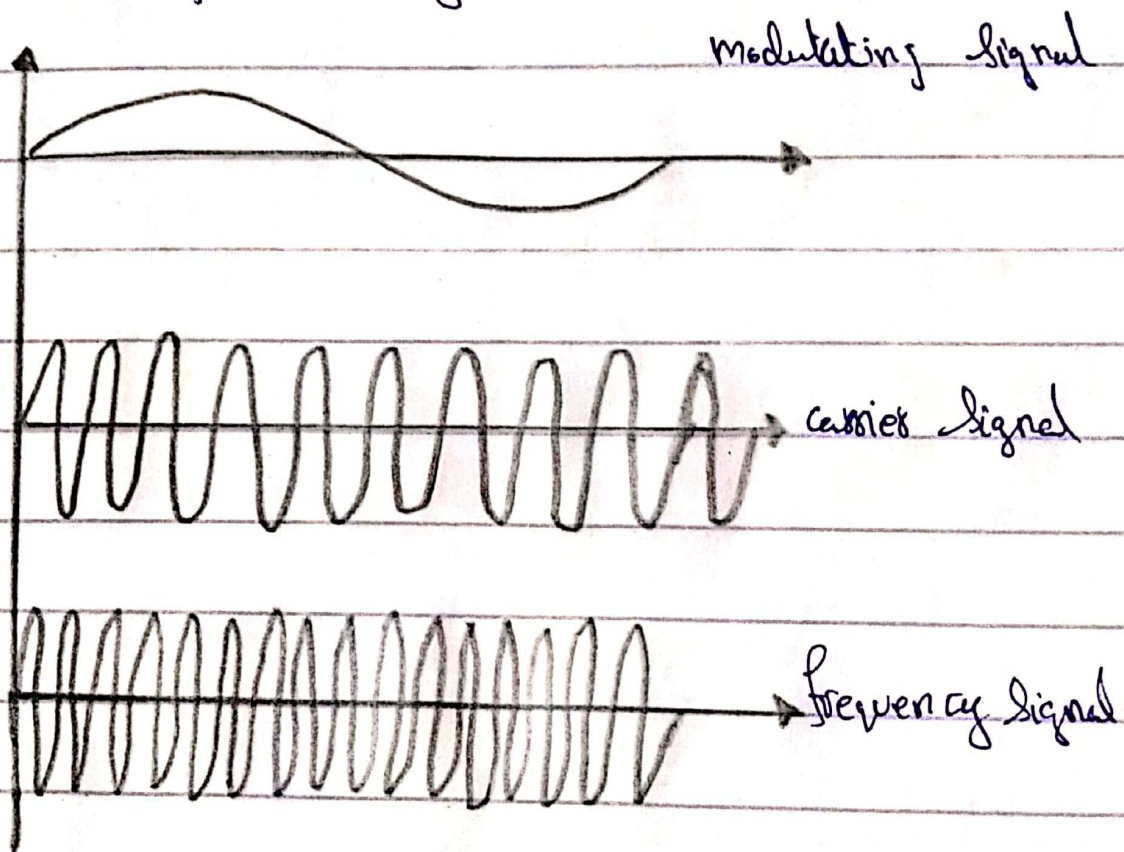 modulating signal
carrier signal
frequency signal